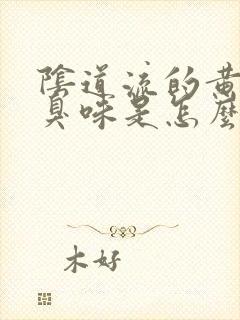 陰道流的黃
臭味是怎麼
木好